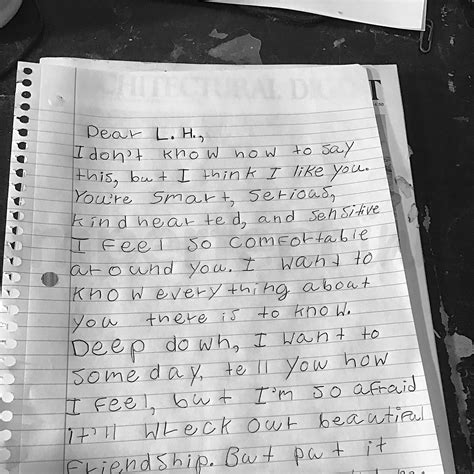 CHITECTURAL DI
T
Dear L. H.,
I don't know how to say
this, but I think I like you.
You're smart, serious,
kind hearted, and sensitive
I feel so comfortable
around you. I want to
know everything about
you there is to know.
Deep down, I want to
someday, tell you how
I feel, but I'm so afraid
it'll wreck our beautiful
friendship. But put it